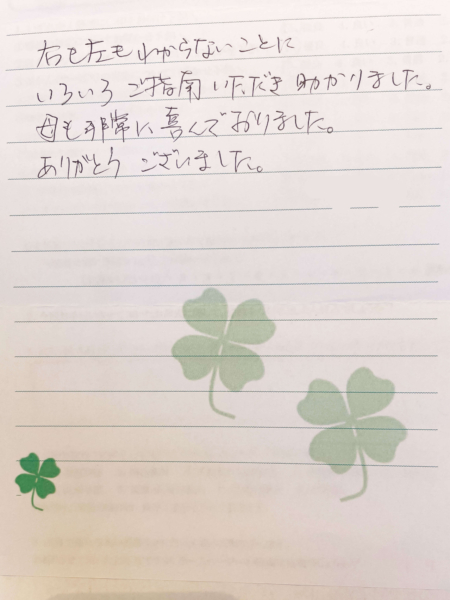 右も左もわからないことに
いろいろご指南いただき助かりました。
母も非常に喜んでおりました。
ありがとうございました。